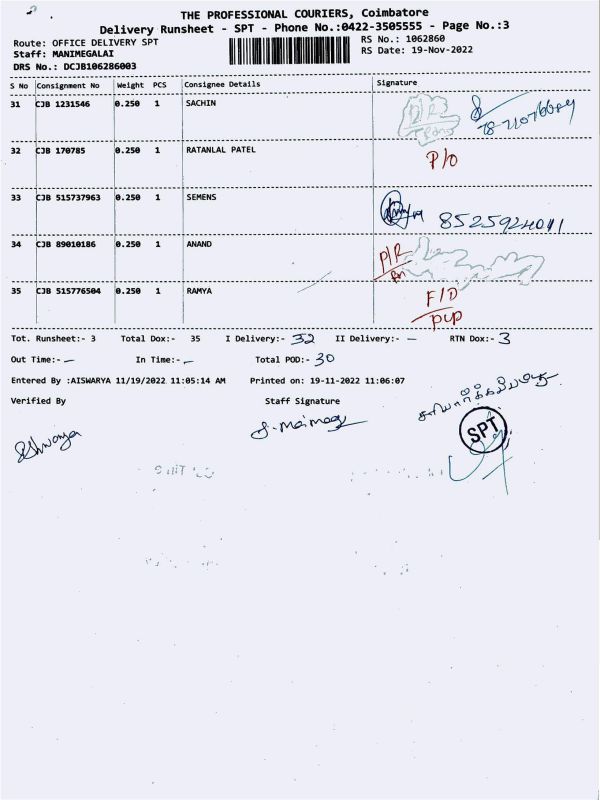 THE PROFESSIONAL COURIERS, Coimbatore
Delivery Runsheet - SPT - Phone No.:0422-3505555 - Page No.:3
Route: OFFICE DELIVERY SPT
Staff: MANIMEGALAI
DRS No.: DCJB106286003
RS No.: 1062860
RS Date: 19-Nov-2022
S No Consignment No Weight PCS Consignee Details Signature
31 CJB 1231546 0.250 1 SACHIN
32 CJB 170785 0.250 1 RATANLAL PATEL P/O
33 CJB 515737963 0.250 1 SEMENS 8525924011
34 CJB 89010186 0.250 1 ANAND P/R
35 CJB 515776504 0.250 1 RAMYA F/D
PUP
Tot. Runsheet:- 3 Total Dox:- 35 I Delivery:- 32 II Delivery:- - RTN Dox:- 3
Out Time:- - In Time:- - Total POD:- 30
Entered By :AISWARYA 11/19/2022 11:05:14 AM Printed on: 19-11-2022 11:06:07
Verified By Staff Signature
SPT